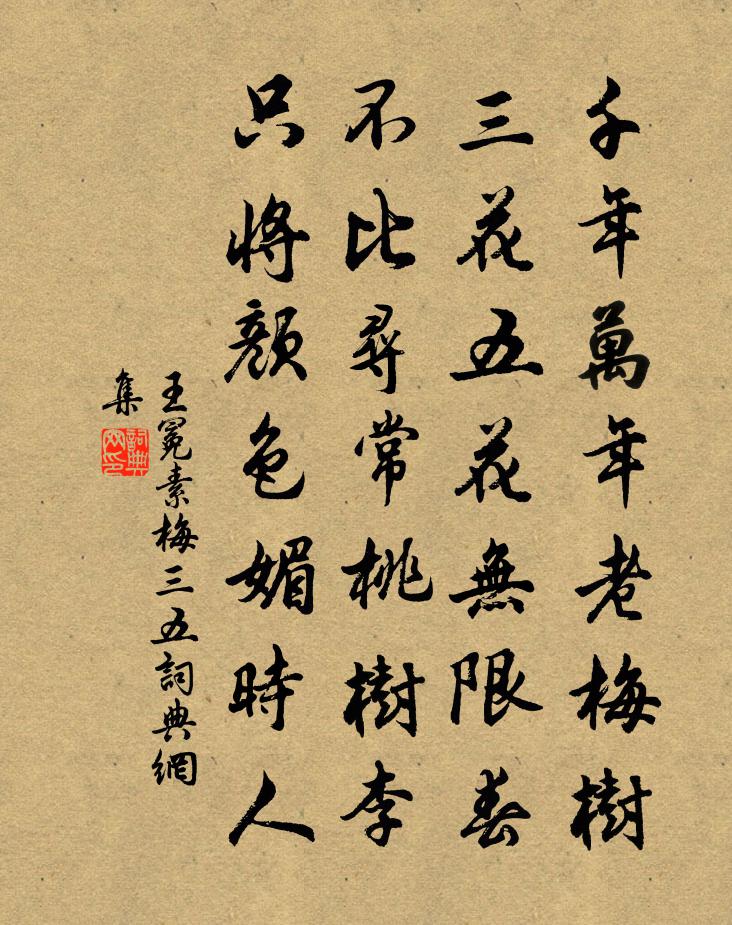 千年萬年老梅樹
三花五花無限春
不比尋常桃樹李
只將顏色媚時人
王冕素梅三五詞典網
集
詞典
网印